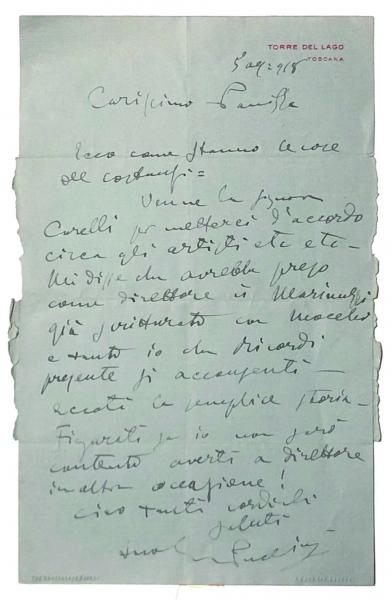 TORRE DEL LAGO
TOSCANA
5 918
Carissimo Panizza
Ecco come stanno le cose
del costanzi =
Venne la signora
Carelli per metterci d'accordo
circa gli artisti etc etc —
Mi disse che avrebbe preso
come direttore il Marinuzzi
già scritturato con Mocchi
e tanto io che Ricordi
presente si acconsentì —
eccoti la semplice storia —
Figurati se io non sarò
contento averti a direttore
in altra occasione!
ciao tanti cordiali
saluti
Puccini